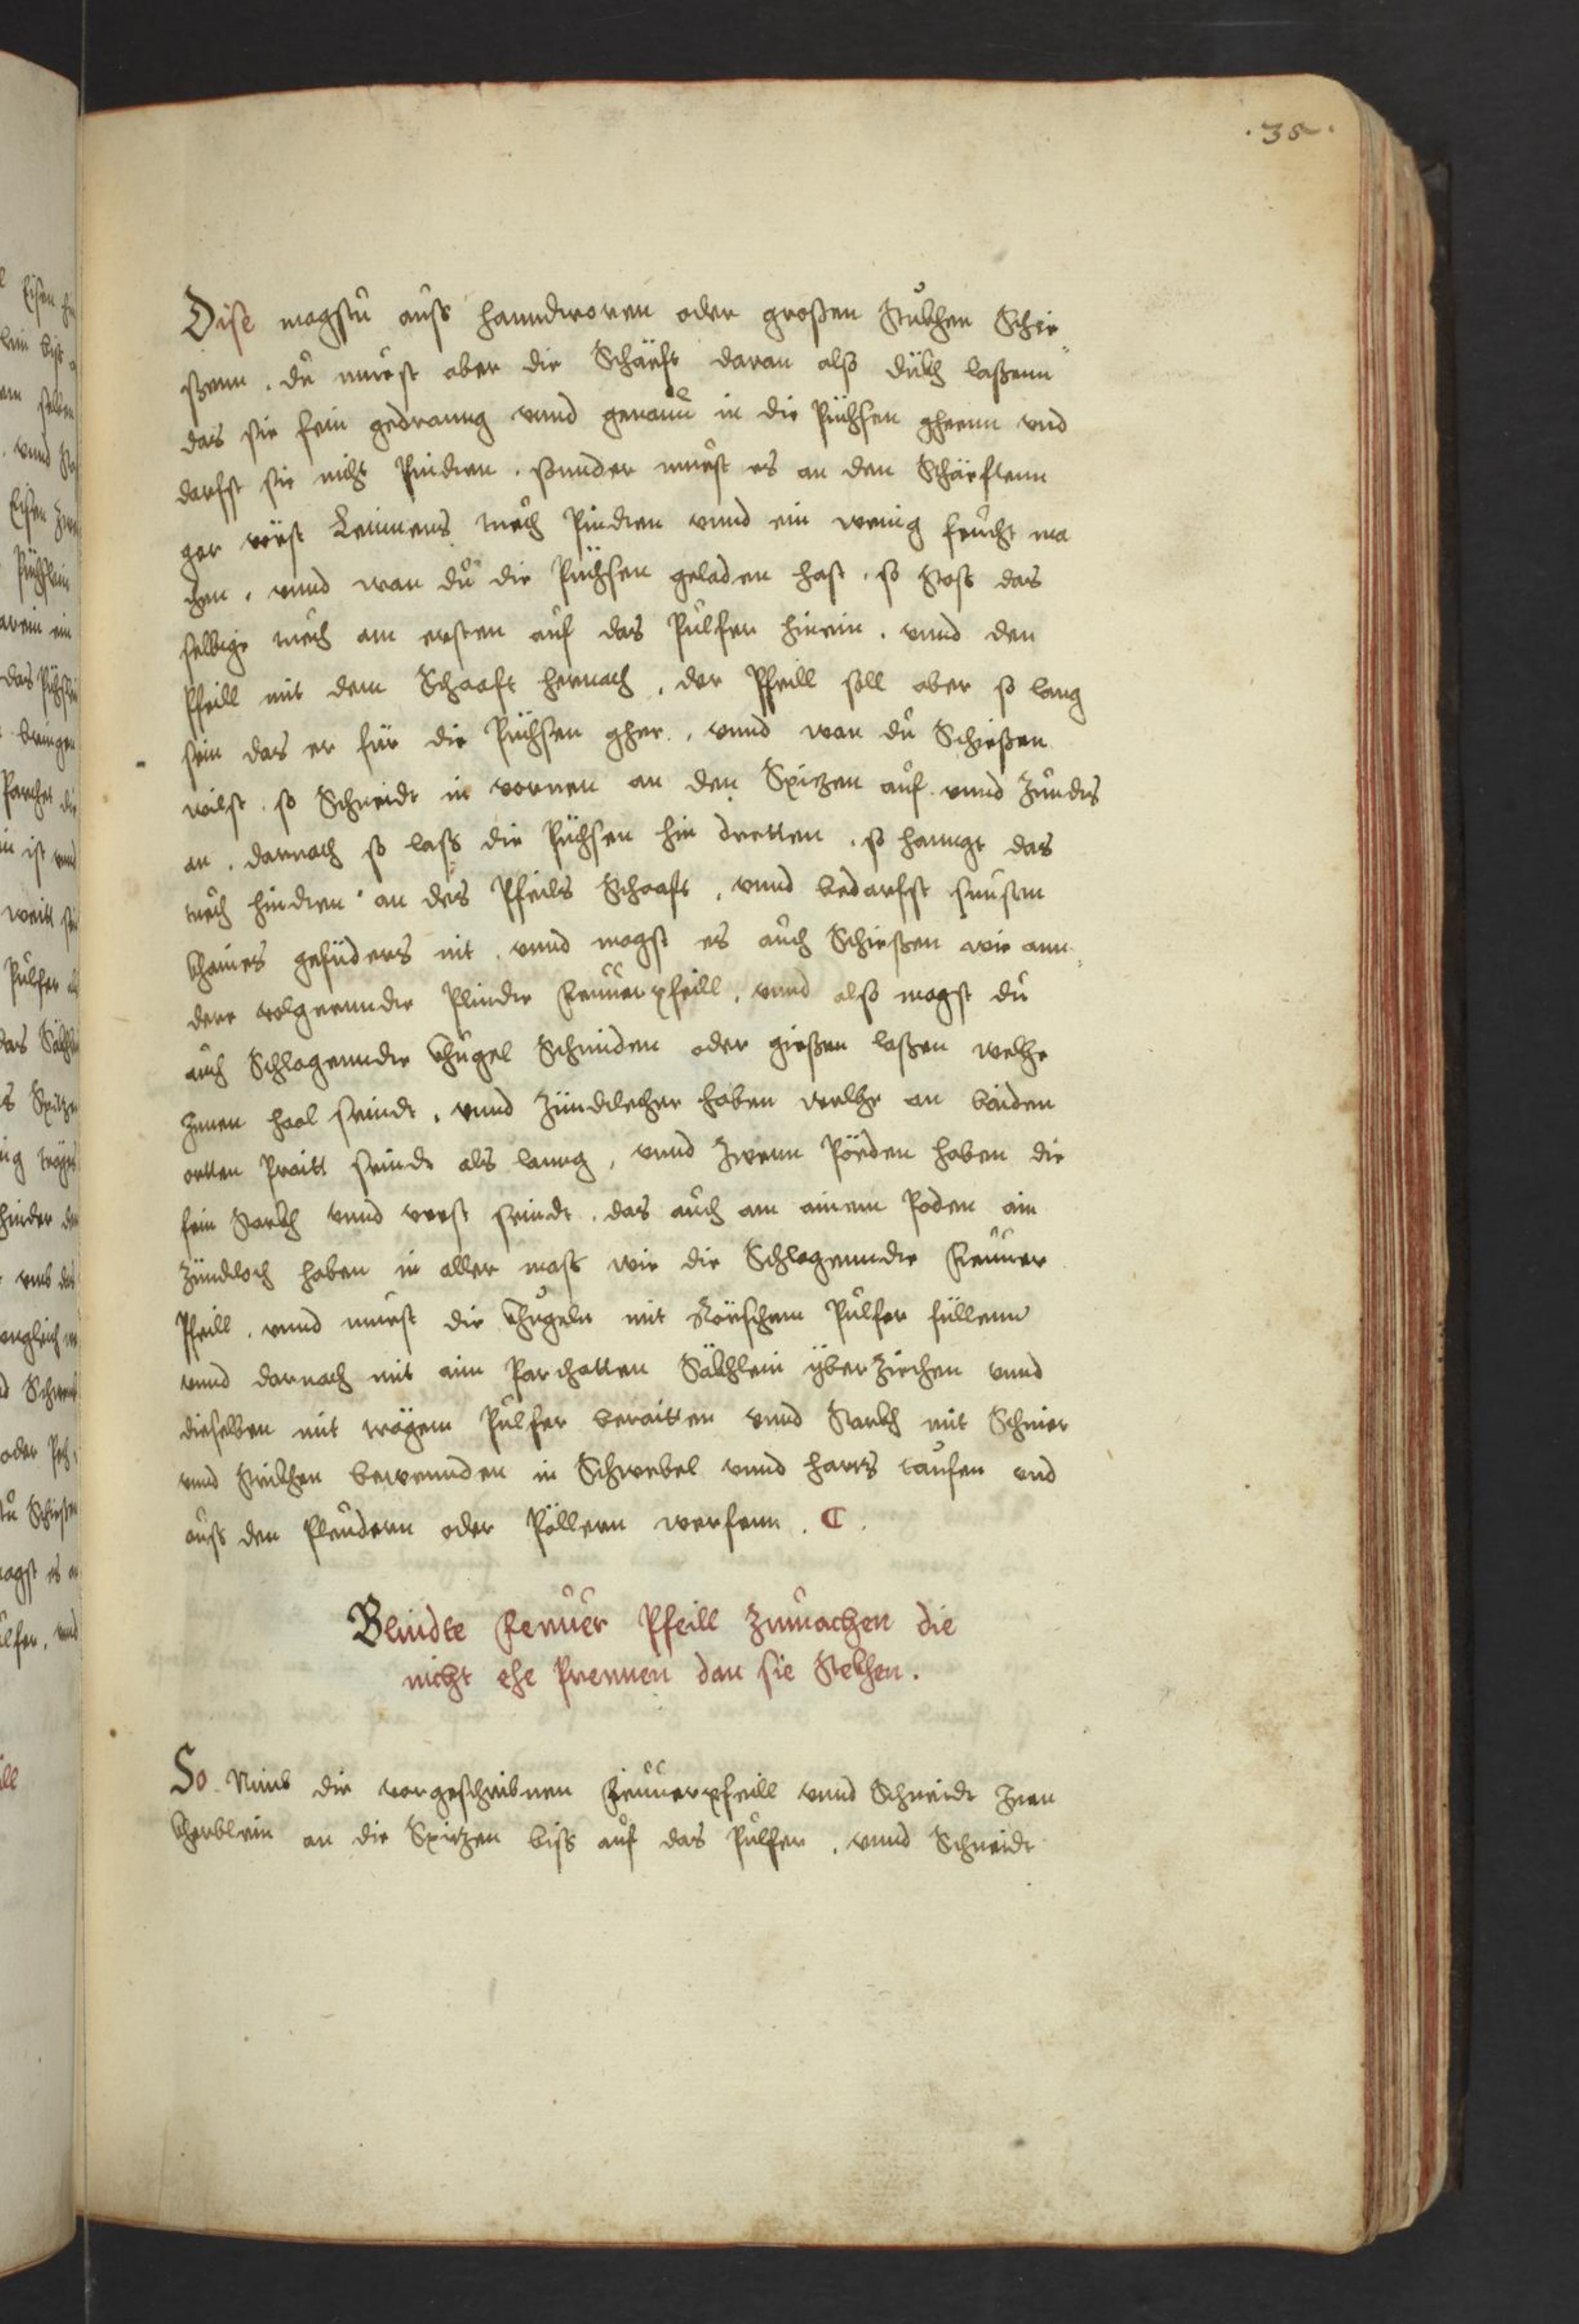 .35.
Dise magstu auss hanndtroren oder großen stukhen Schie
ßenn . du muest aber die Schäeft daran also dükh laßenn
das sie fein gedranng vnnd genaue in die Püchsen gheenn vnd
darfst sie nicht Pindten . sonnder muest es an den Schäeftenn
gar vöest Leinnens tuech Pindten vnnd ein wenig feucht ma
chen , vnnd wan du die Püchsen geladen hast , so stoss das
selbige tuech am ersten auf das Pulfer hinein . vnnd den
Pfeill mit dem Schaaft hernach , der Pfeill soll aber so lang
sein das er für die Püchsen gher , vnnd wan du Schießen
wilst . so Schneidt in vornen an den Spitzen auf vnnd Zündts
an . darnach so lass die Püchsen hin dretten , so hanngt das
tuech hindten an des Pfeils Schaaft , vnnd bedarfst sunsten
khaines gefüders nit . vnnd magst es auch Schießen wie ann
dere volgeennde Plinde Feuuerpfeill , vnnd also magst du
auch Schlagennde khugel Schmiden oder gießen laßen welche
Innen haal seindt , vnnd Zündtlecher haben welche an baiden
ortten Praitt seindt als lanng , vnnd Zwenn Pöeden haben die
fein starkh vnnd vest seindt . das auch am ainem Poden ain
Zündtloch haben in aller mass wie die Schlagennde Feuuer
Pfeill . vnnd muest die khugeln mit Röeschem Pulfer füllenn
vnnd darnach mit aim Parchatten Säkhlein yberziechen vnnd
dieselben mit trägem Pulfer beraitten vnnd starkh mit Schnier
vnnd strikhen bewennden in Schwebel vnnd harts tauffen vnd
auss den Pleudern oder Pöllern werfenn . C .
Blindte Feuuer Pfeill Zumachen die
nicht ehe Prennen dan sie Stekhen .
So Nimb die vorgeschribnen Feuuerpfeill vnnd Schneidt Inen
kherblein an die Spitzen biss auf das Pulfer . vnnd Schneidt